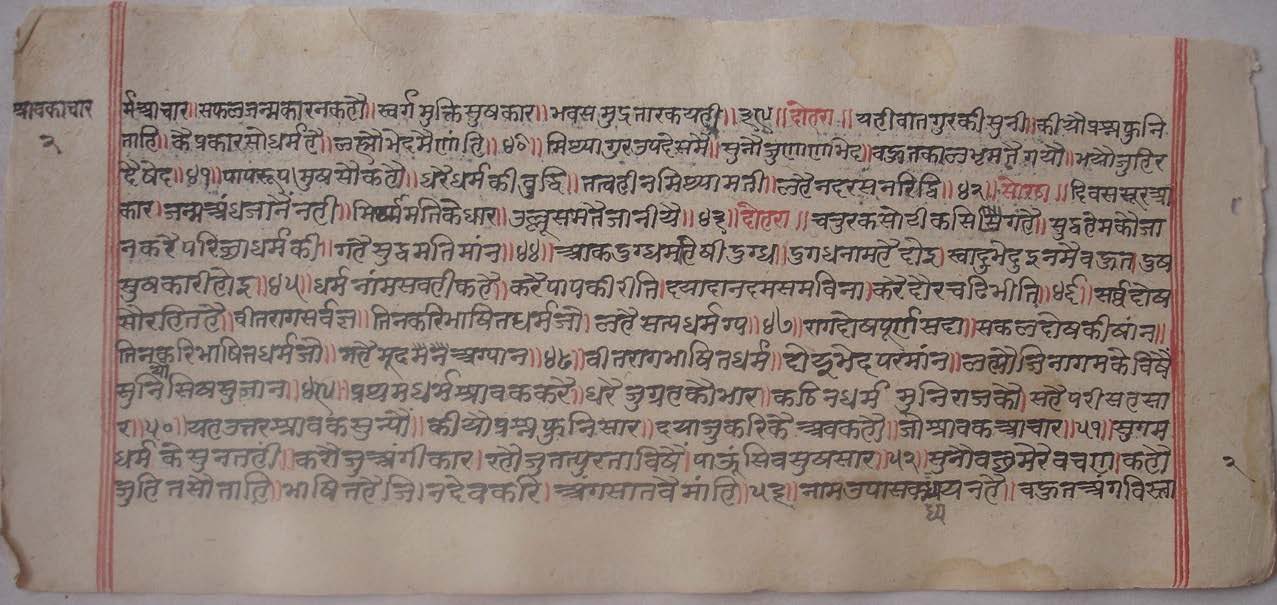 श्रावकाचार
२
र्मआचार॥सफलजन्मकारनकह्यौ॥स्वर्गमुक्तिसुषकार॥भवसमुद्रतारकयही॥३९॥दोहरा॥यहीवातगुरकीसुनी॥कीयौप्रश्नफुनि
ताहि॥कैप्रकारसोधर्महै॥लह्यौभेदमैणांहि॥४०॥मिथ्यागुरउपदेसमै॥सुनौजुणाणाभेद॥वहुतकालभ्रमतैगयौ॥भयौजुतिर
दैषेद॥४१॥पापरूप।मुषसौकह्यौ॥धरैधर्मकीवुद्धि॥तत्वहीनमिथ्यामती॥लहैनदरसनरिद्धि॥४२॥सोरठा॥दिवससूरआ
कार।जन्मअंधजानैंनही॥मिथ्यामतिकैधार।उल्लूसमतैजानीयै॥४३॥दोहरा॥चतुरकसोटीकसि गहै॥सुद्धहेमकौजा
नकरैपरिछाधर्मकी॥गहैसुद्धमतिमांन॥४४॥आकदुग्धमहिषीदुग्ध॥दुगधनामहैदोइ।स्वादुभेदुइनमैवहुत।दुष
सुषकारीहोइ॥४५॥धर्मनांमसवहीकहै॥करैपापकीरीति।दयादानदमसमविना।करैदौरचढिभीति॥४६॥सर्वदोष
सौरहितहै॥वीतरागसर्वज्ञ॥तिनकरिभाषितधर्मजौ॥लहैसत्यधर्मग्य॥४७॥रागदोषपूर्णसदा॥सकलदोषकीषांन॥
तिनकरिभाषितधर्मजौ॥गहैमूढमनैअग्यान॥४८॥वीतरागभाषितधर्म॥दोइभेदपरमांन॥लह्यौजिनागमकेविषै
मुनिसिषसुजान॥४९॥प्रथमधर्मश्रावककरै॥धरैजुग्रहकौभार॥कठिनधर्म मुनिराजकौ॥सहैपरीसहसा
र॥५०॥यहउत्तरश्रावकसुन्यौं॥कीयौप्रश्नफुनिसार॥दयाजुकरिकैअवकहौ॥जोश्रावकआचार॥५१॥सुगम
धर्मकेसुनतही॥करौजुअंगीकार।रहोजुतत्परताविषैं।पाऊंसिवसुषसार॥५२॥सुनौवछमेरेवचण।कहौ
जुहितसौताहि॥भाषितहैजि।नदेवकरि।अंगसातवैमांहि॥५३॥नामउपासकध्ययनहै॥वहुतअंगविस्ता
२